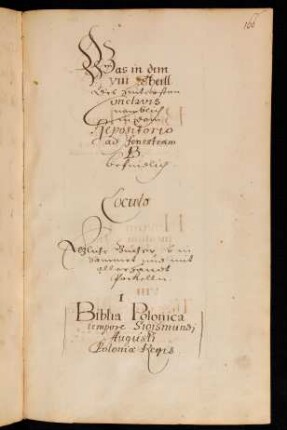 166
Was in dem
VIII Theill
des hindersten
Conclavis
nemblich
in dem
Repositorio
ad fenestram
B.
befindlich
Loculo
I
Biblia Polonica
tempore Sigismundi
Augusti
Poloniæ Regis